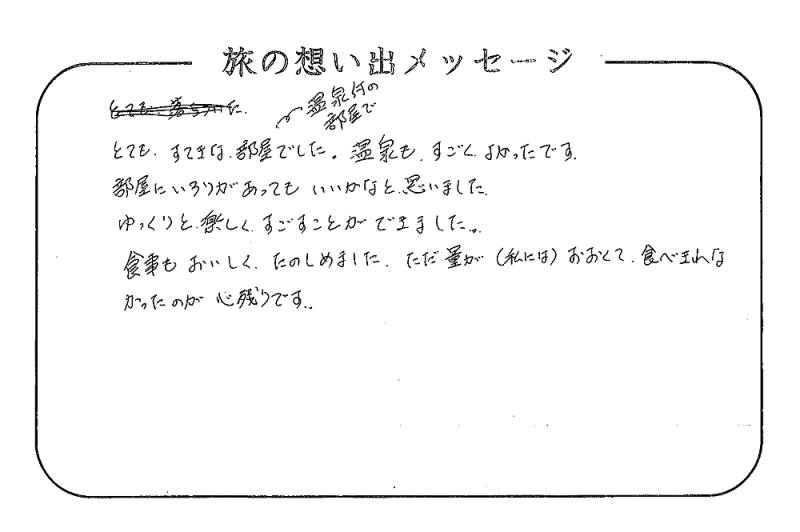 旅の想い出メッセージ
温泉付の
部屋で
とても、すてきな、部屋でした。温泉も、すごく、よかったです。
部屋にいろりがあっても いいかなと、思いました。
ゆっくりと、楽しく、すごすことが できました。
食事も おいしく、たのしめました、ただ 量が (私には) おおくて、食べきれな
かったのが 心残りです。